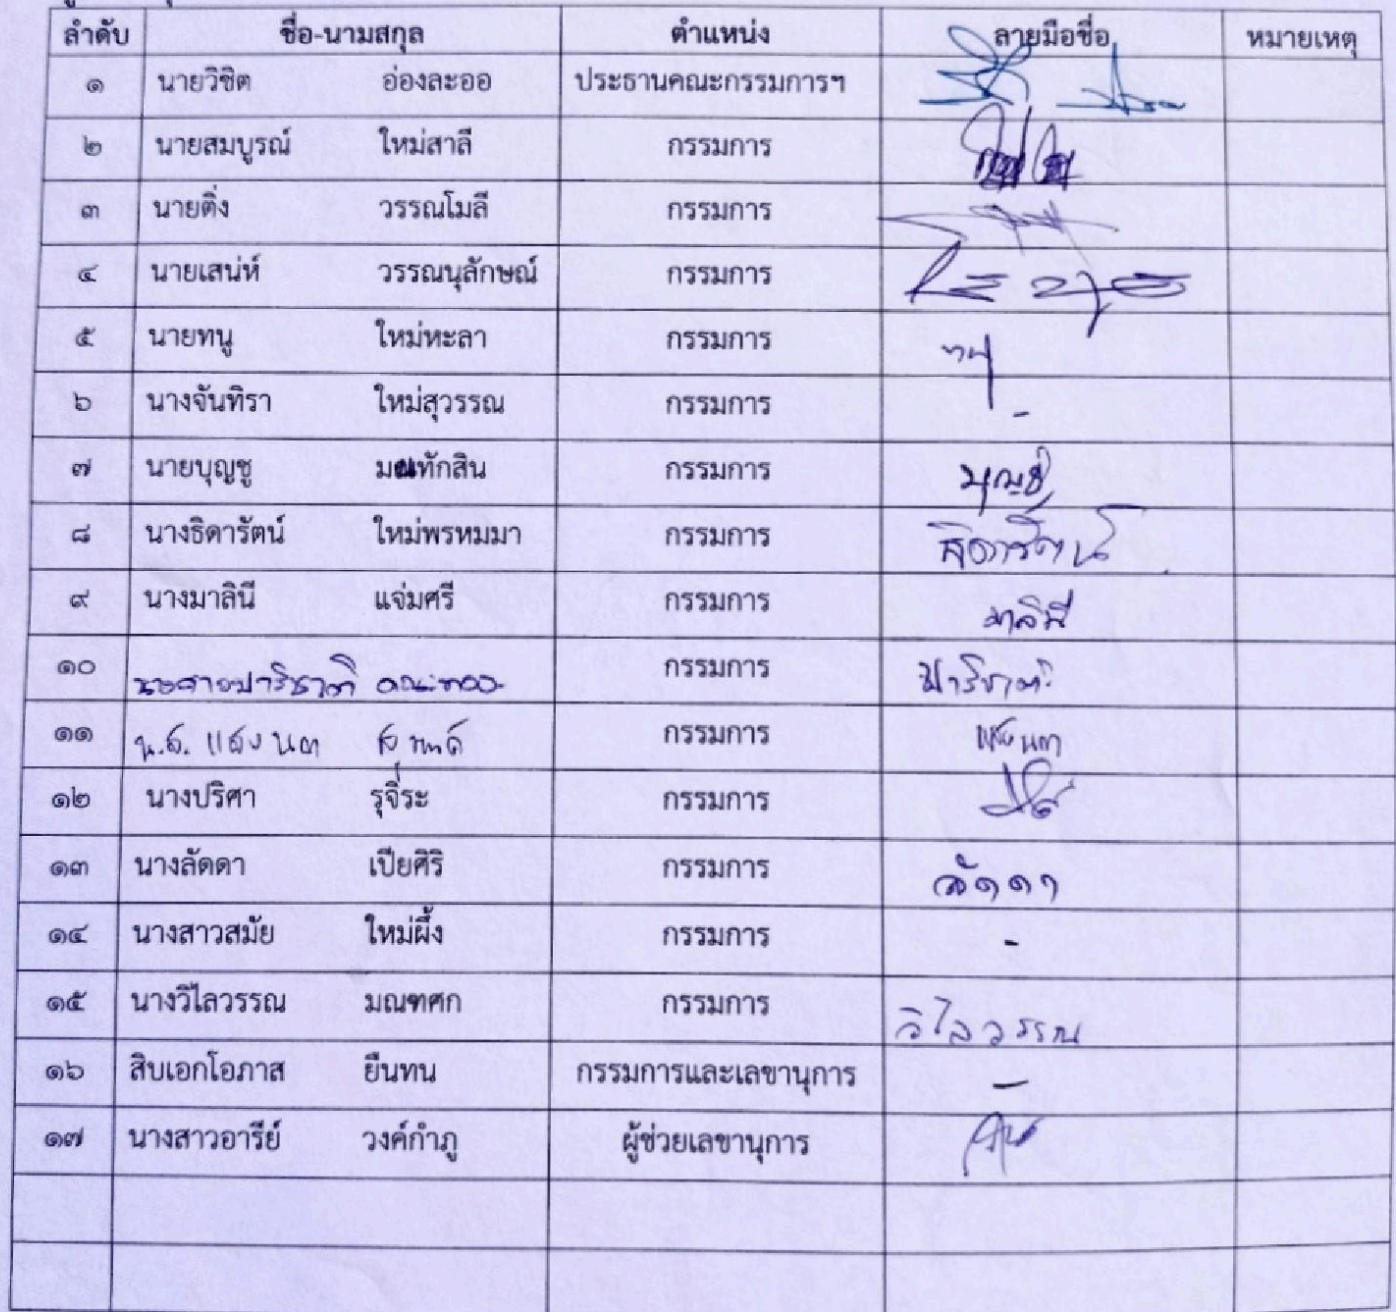 ลำดับ ชื่อ-นามสกุล ตำแหน่ง ลายมือชื่อ หมายเหตุ
๑ นายวิชิต อ่องละออ ประธานคณะกรรมการฯ
๒ นายสมบูรณ์ ใหม่สาลี กรรมการ
๓ นายติ่ง วรรณโมลี กรรมการ
๔ นายเสน่ห์ วรรณนุลักษณ์ กรรมการ
๕ นายทนู ใหม่หะลา กรรมการ
๖ นางจันทิรา ใหม่สุวรรณ กรรมการ -
๗ นายบุญชู มณฑักสิน กรรมการ บุญชู
๘ นางธิดารัตน์ ใหม่พรหมมา กรรมการ ธิดารัตน์
๙ นางมาลินี แจ่มศรี กรรมการ มาลินี
๑๐ นางสาวปาริชาติ กรรมการ ปาริชาติ
๑๑ น.ส. แสงนภา กรรมการ แสงนภา
๑๒ นางปริศา รุจิ่ระ กรรมการ
๑๓ นางลัดดา เปียศิริ กรรมการ ลัดดา
๑๔ นางสาวสมัย ใหม่ผึ้ง กรรมการ -
๑๕ นางวิไลวรรณ มณฑศก กรรมการ วิไลวรรณ
๑๖ สิบเอกโอภาส ยืนทน กรรมการและเลขานุการ -
๑๗ นางสาวอารีย์ วงค์กำภู ผู้ช่วยเลขานุการ